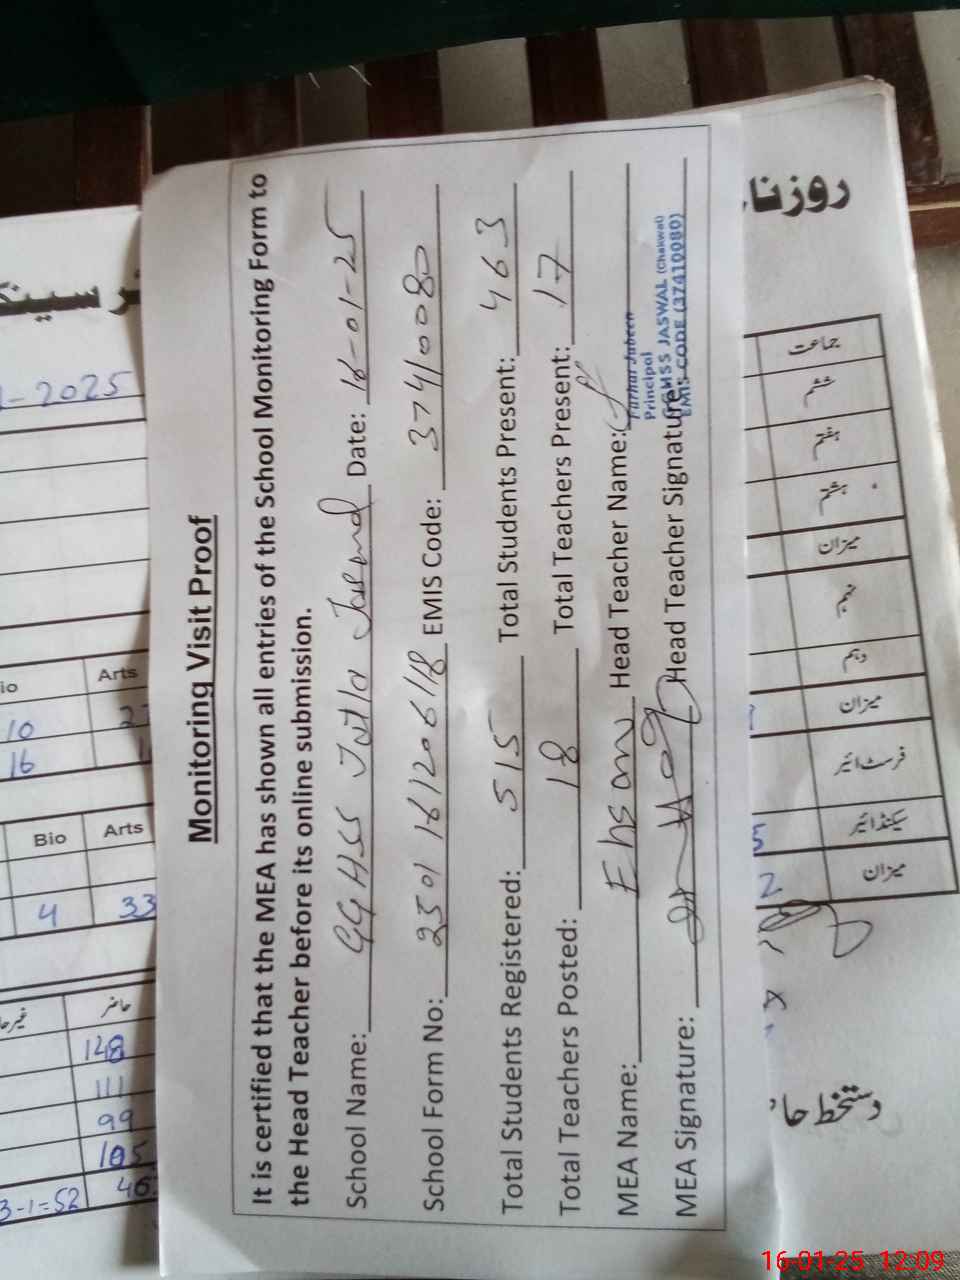 Monitoring Visit Proof
It is certified that the MEA has shown all entries of the School Monitoring Form to
the Head Teacher before its online submission.
School Name: GGHSS Jaswal Date: 16-01-25
School Form No: EMIS Code: 37410080
Total Students Registered: 515 Total Students Present: 463
Total Teachers Posted: 18 Total Teachers Present: 17
MEA Name: Ehsan Head Teacher Name:
MEA Signature: Head Teacher Signature:
Farhat Jabeen
Principal
GGHSS JASWAL (Chakwal)
EMIS CODE (37410080)
-2025
Arts
10
16
Bio Arts
4 33
حاضر
148
111
99
105
3-1=52
جماعت
ششم
ہفتم
ہشتم
میزان
نہم
دہم
میزان
فرسٹ ائیر
سیکنڈ ائیر
میزان
دستخط
16-01-25 12:09